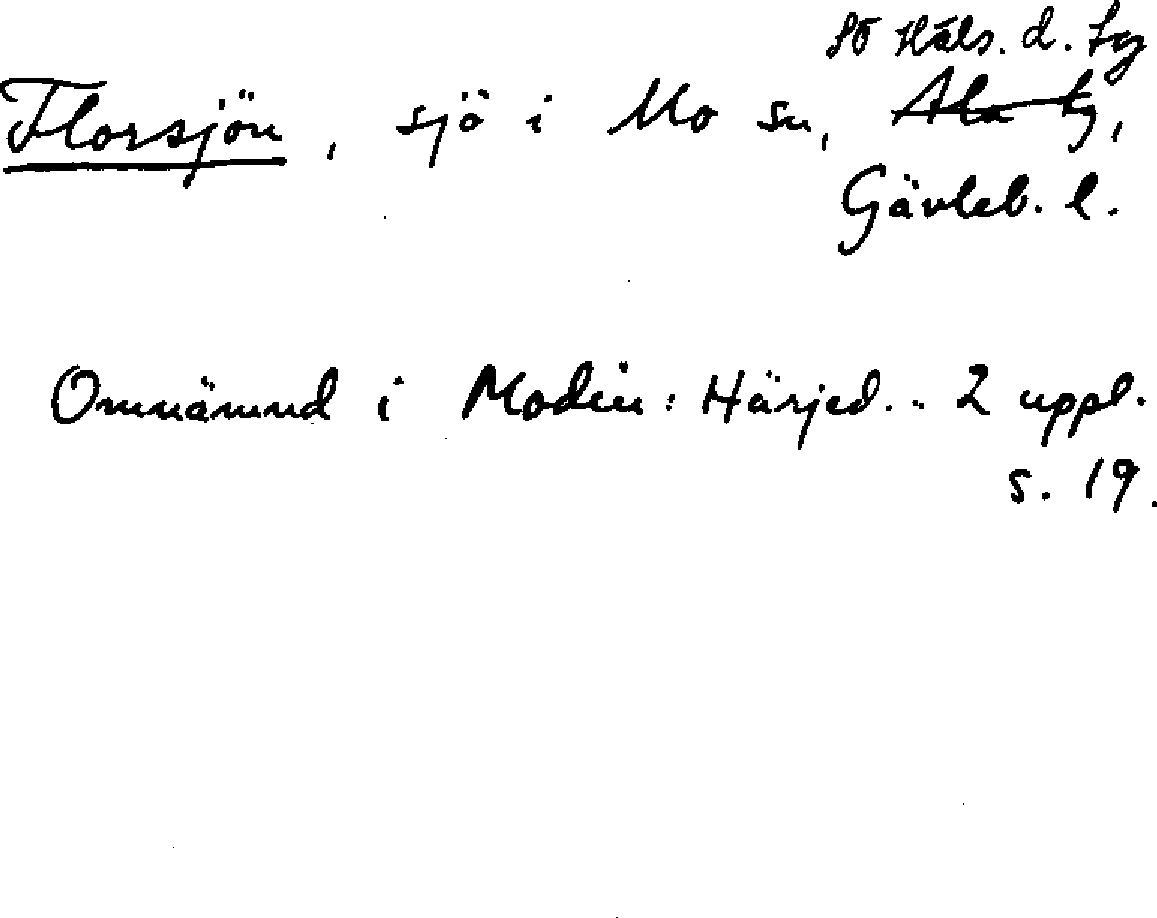 SÖ Häls. d. tg
Florsjön, sjö i Mo sn, Ala tg,
Gävleb. l.
Omnämnd i Modin: Härjed. .. 2 uppl.
s. 19.